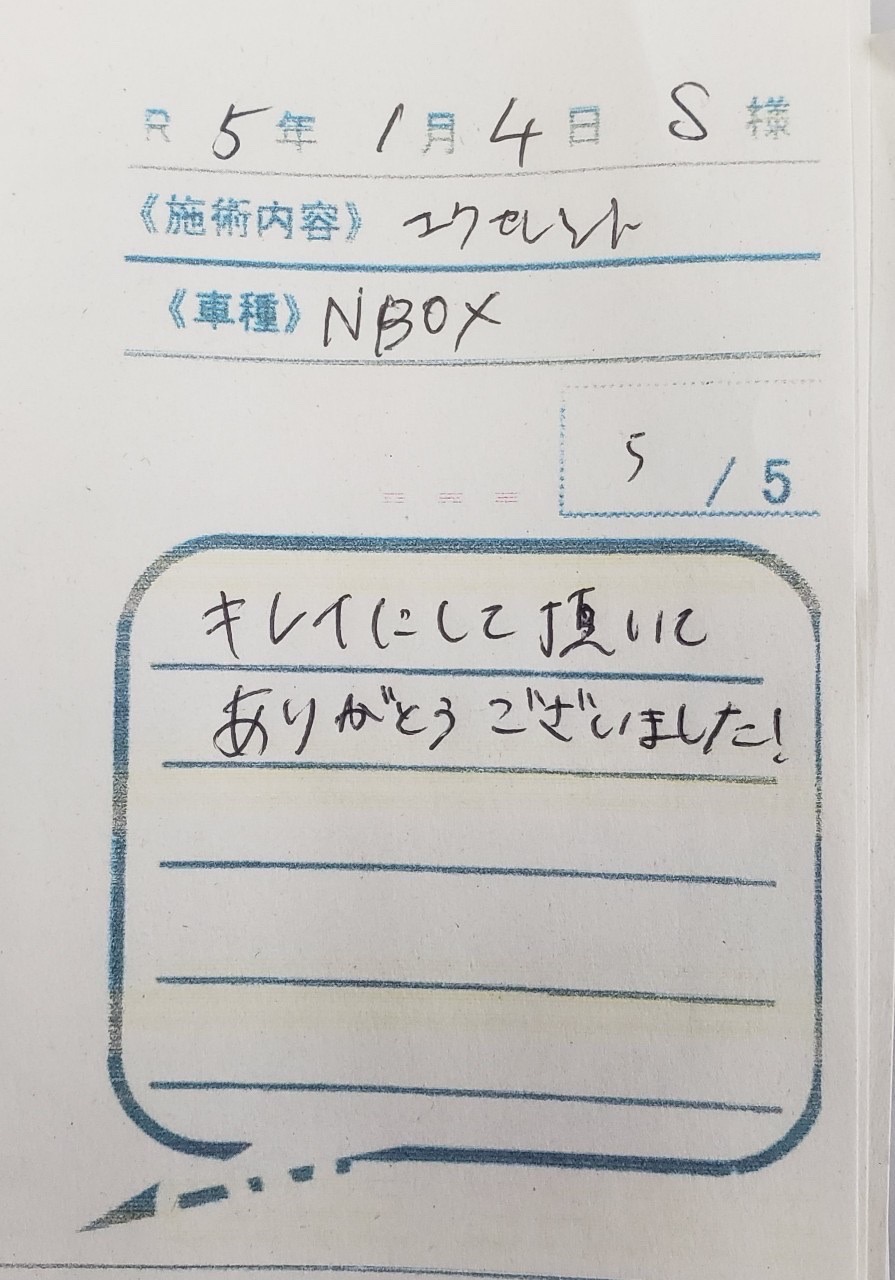 R 5年 1月4日 S 様
《施術内容》 エクセレント
《車種》 NBOX
5 / 5
キレイにして頂いて
ありがとうございました!